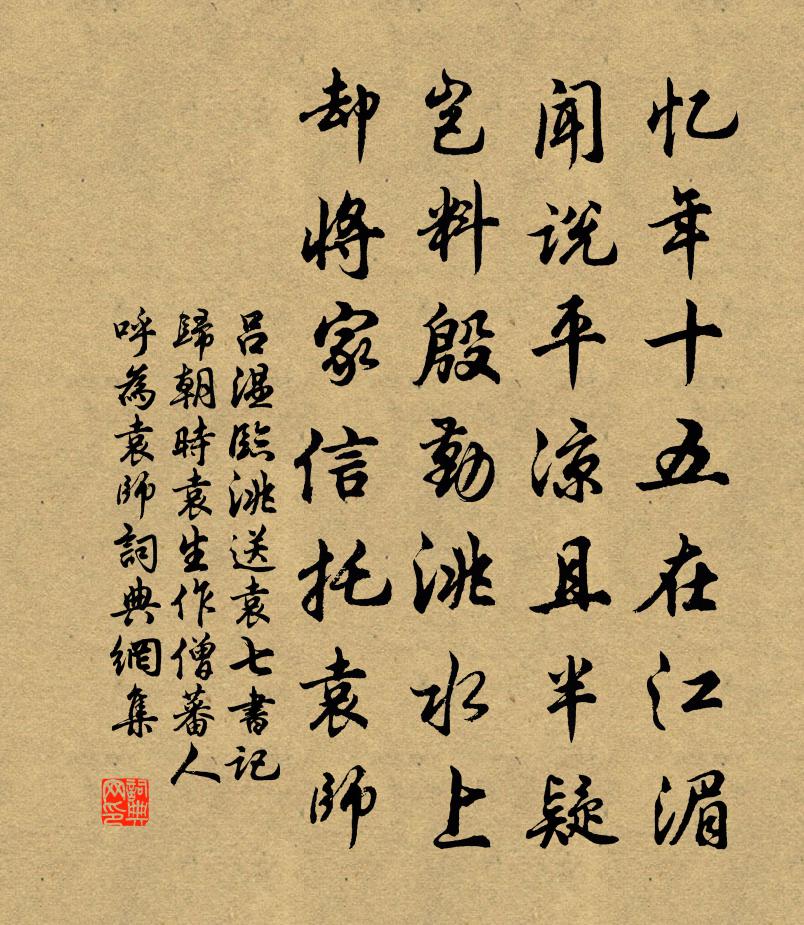 忆年十五在江湄
闻说平凉且半疑
岂料殷勤洮水上
却将家信托袁师
吕温临洮送袁七書记
歸朝時袁生作僧蕃人
呼為袁师詞典網集
詞典网印